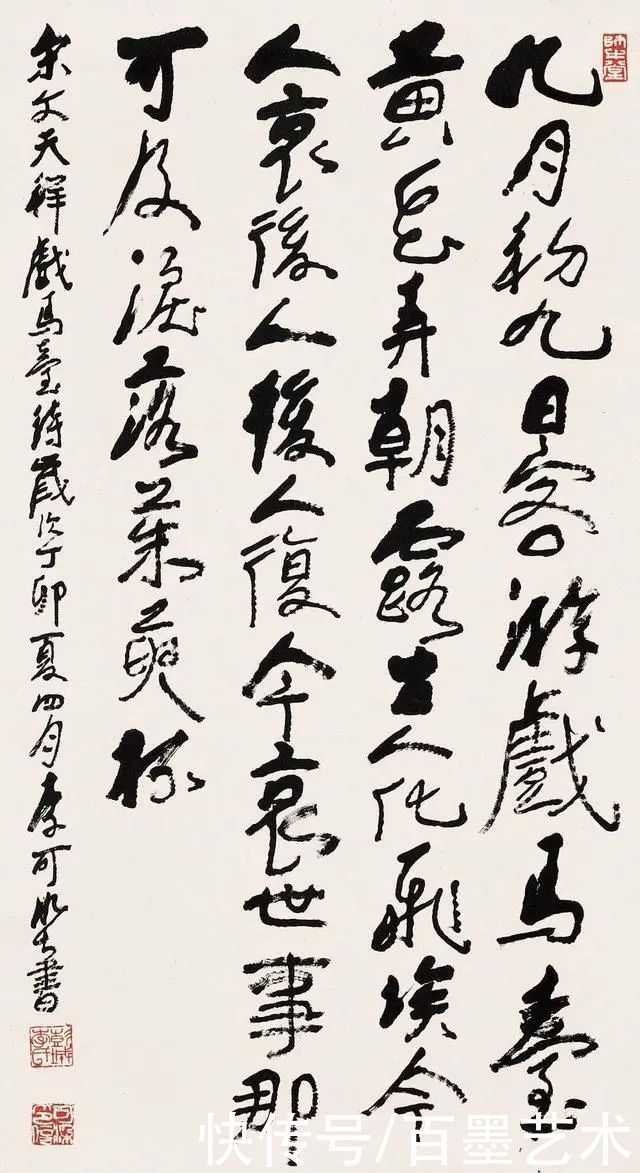 師牛堂
九月初九日客游戲馬臺
黄花弄朝露古人化飛埃今
人哀後人後人復今哀世事那
可及淚落茱萸杯
宋文天祥戲馬臺詩歲次丁卯夏四月李可染書
快传号/百墨艺术